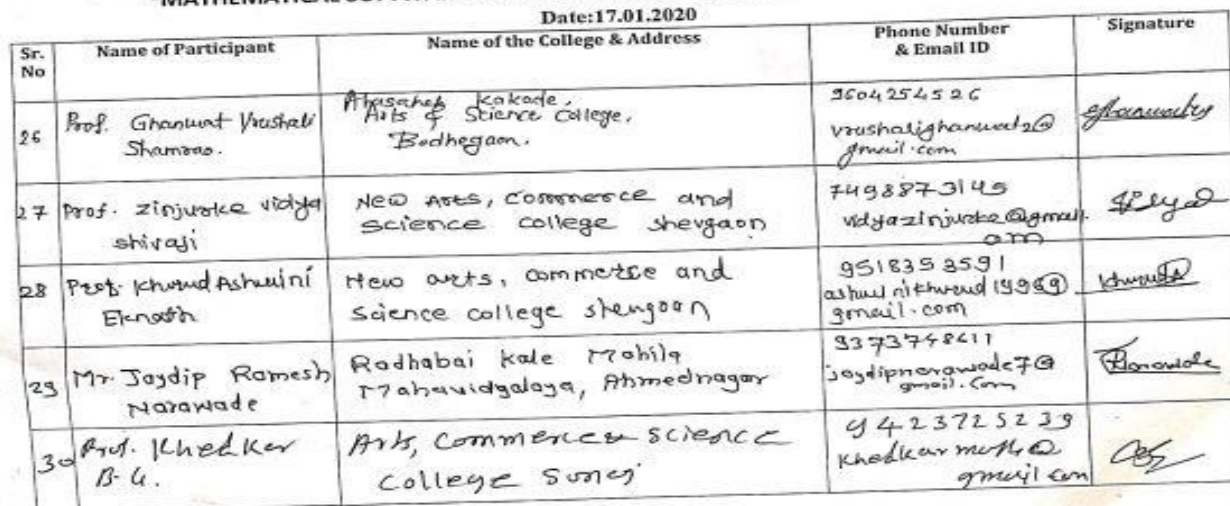 Date:17.01.2020
Sr. No
Name of Participant
Name of the College & Address
Phone Number
& Email ID
Signature
26
Prof. Ghanwat Vrushali
Shamrao.
Abasaheb Kakade,
Arts & Science College,
Bodhegaon.
9604254526
vrushalighanwat2@
gmail.com
27
Prof. Zinjurke vidya
shivaji
New Arts, Commerce and
science college shevgaon
7498873145
vidyazinjurke@gmail.
com
28
Prof. Khurud Ashwini
Eknath
New arts, commerce and
science college shevgaon
9518353591
gmail.com
29
Mr. Jaydip Ramesh
Narawade
Radhabai Kale Mahila
Mahavidyalaya, Ahmednagar
9373748611
jaydipnarawade7@
gmail.com
30
Prof. Khedkar
B. G.
Arts, Commerce & Science
College
9423725239
gmail com